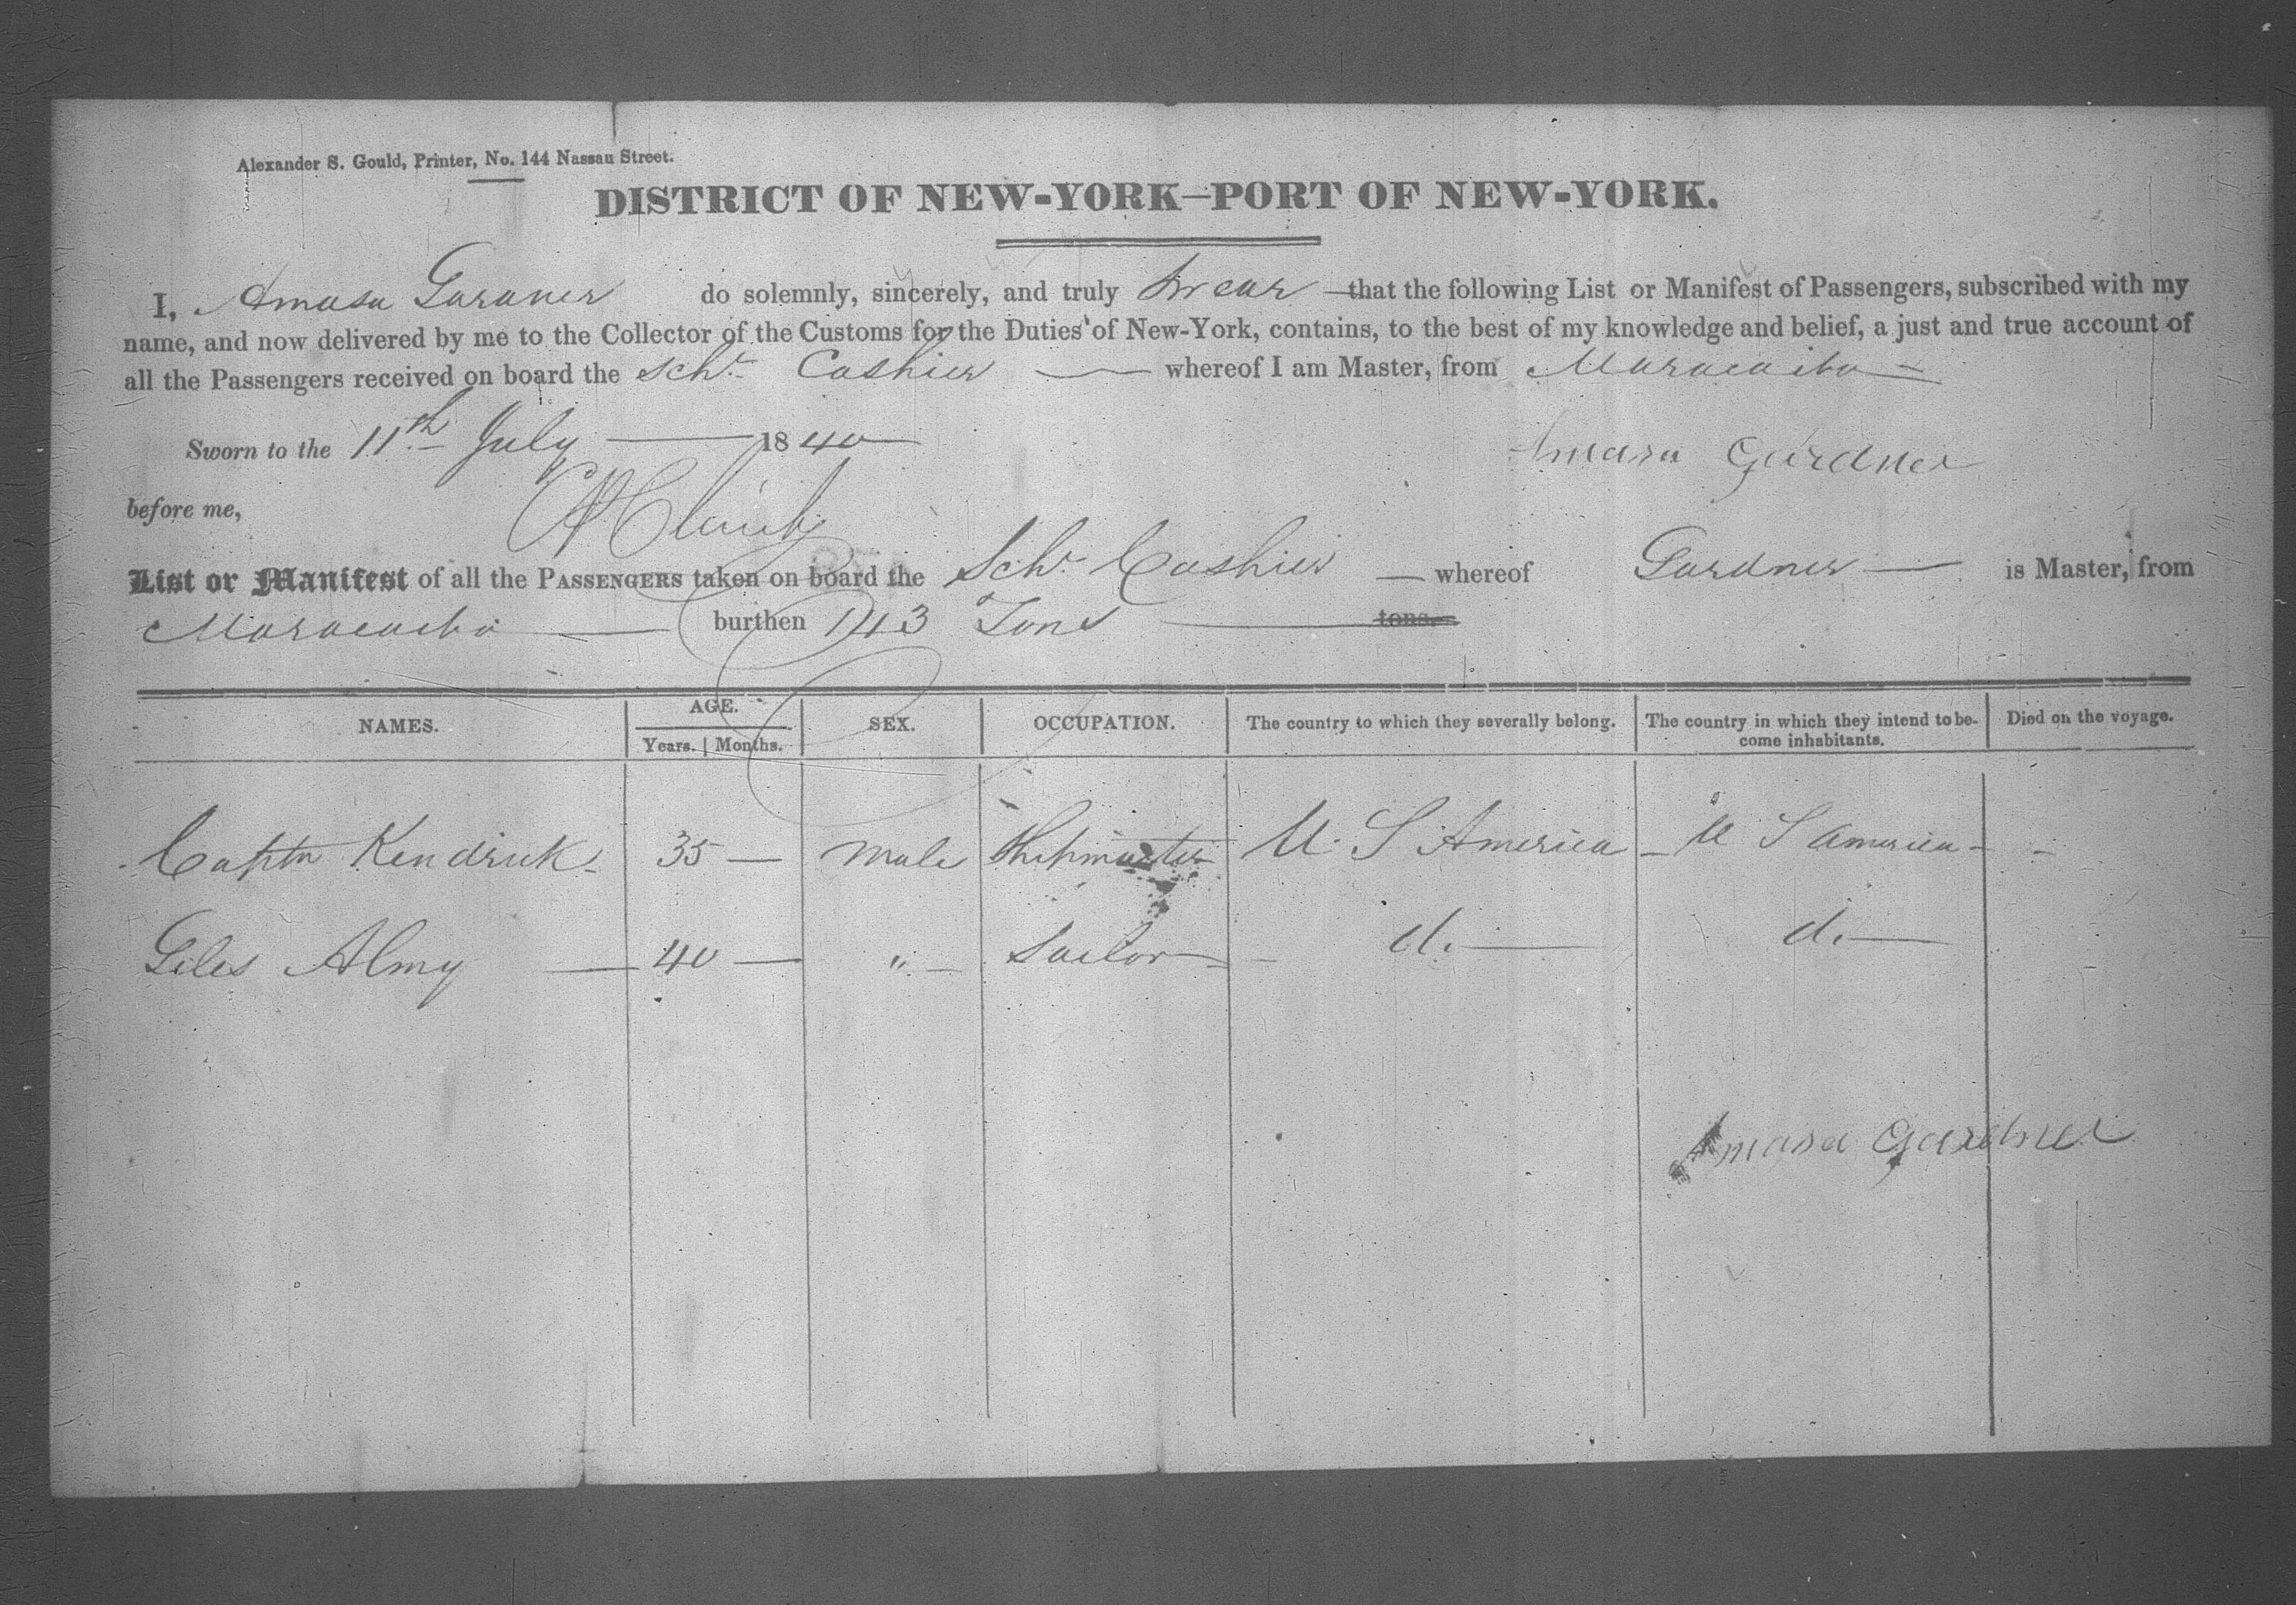 Alexander S. Gould, Printer, No. 144 Nassau Street.
DISTRICT OF NEW-YORK—PORT OF NEW-YORK.
I, Amasa Gardner do solemnly, sincerely, and truly Swear that the following List or Manifest of Passengers, subscribed with my
name, and now delivered by me to the Collector of the Customs for the Duties of New-York, contains, to the best of my knowledge and belief, a just and true account of
all the Passengers received on board the Schr Cashier whereof I am Master, from Maracaibo
Sworn to the 11th July 1840
Amasa Gardner
before me,
List or Manifest of all the PASSENGERS taken on board the Schr Cashier whereof Gardner is Master, from
Maracaibo burthen 143 Tons tons.
NAMES. AGE. Years. Months. SEX. OCCUPATION. The country to which they severally belong. The country in which they intend to become inhabitants. Died on the voyage.
Captn Kendrick 35 — male Shipmaster U. S America U S America -
Giles Almy 40 — " Sailor do do
Amasa Gardner